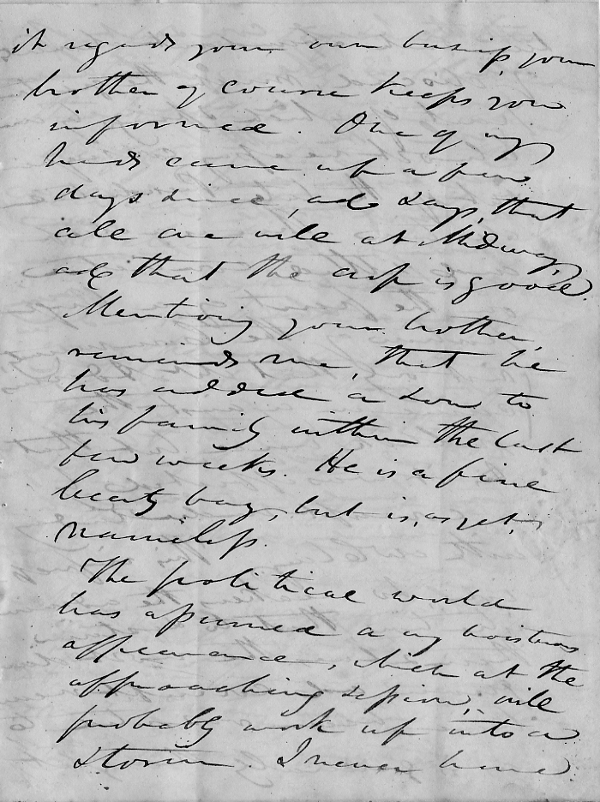 it regards your own business, your
brother of course keeps you
informed. One of my
hands came up a few
days since, and says, that
all are well at Midway,
and that the crop is good.
Mentioning your brother,
reminds me, that he
has added a son to
his family within the last
few weeks. He is a fine
hearty boy, but is, as yet,
nameless.
The political world
has assumed a boisterous
appearance, which at the
approaching session, will
probably work up into a
storm. I never have